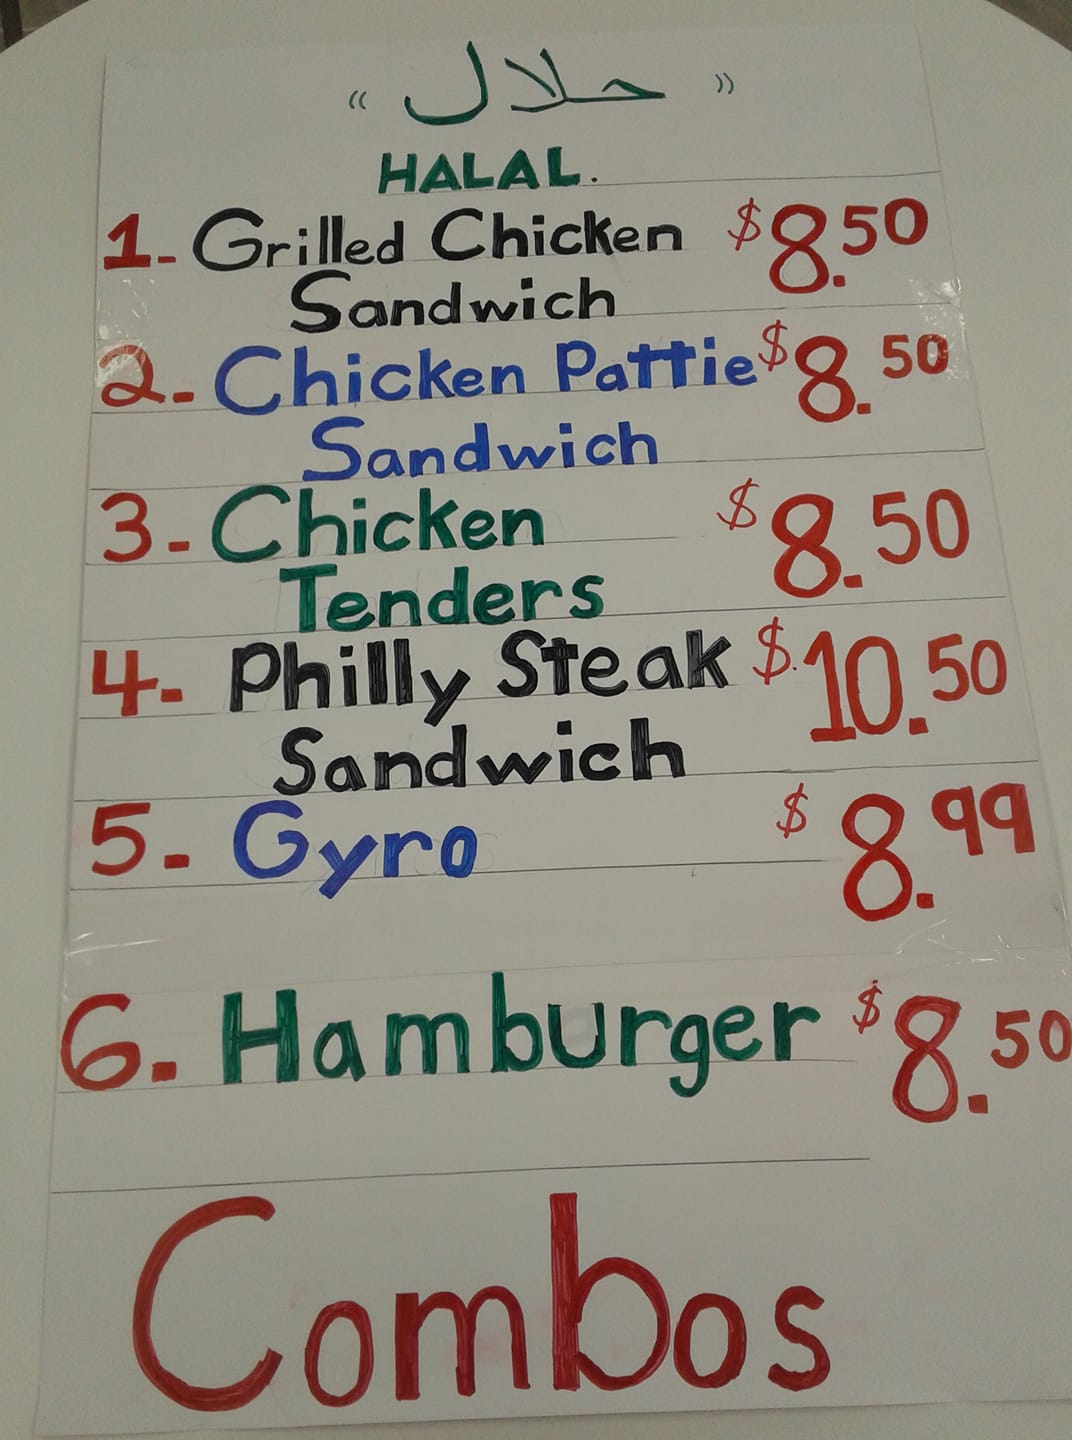 « حلال »
HALAL.
1. Grilled Chicken $8.50
Sandwich
2. Chicken Pattie $8.50
Sandwich
3. Chicken $8.50
Tenders
4. Philly Steak $10.50
Sandwich
5. Gyro $8.99
6. Hamburger $8.50
Combos